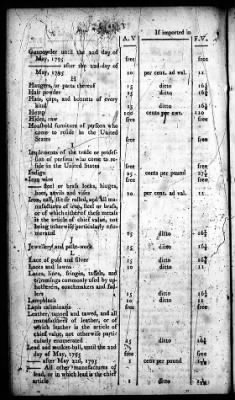 If imported in
A.V F.V.
Gunpowder until the 22d day of
May, 1795 free free
—— after the 22d day of
May, 1795 10 per cent. ad val. 11
H
Hangers, or parts thereof 15 ditto 16½
Hair powder 15 ditto 16½
Hats, caps, and bonnets of every
kind 15 ditto 16½
Hemp 100 cents per cwt. 110
Hides, raw free free
Houshold furniture of persons who
come to reside in the United
States free free
I
Implements of the trade or profes-
sion of persons who come to re-
side in the United States free free
Indigo 25 cents per pound 27½
Iron wire free free
—— steel or brass locks, hinges,
hoes, anvils and vises 10 per cent. ad val. 11
Iron, cast, slit or rolled, and all ma-
nufactures of iron, steel or brass,
or of which either of these metals
is the article of chief value, not
being otherwise particularly enu-
merated 15 ditto 16½
Jewellery and paste-work 15 ditto 16½
L
Lace of gold and silver 15 ditto 16½
Laces and lawns 10 ditto 11
Laces, lines, fringes, tassels, and
trimmings commonly used by up-
holsterers, coachmakers and sad-
lers 15 ditto 16½
Lampblack 10 ditto 11
Lapis calaminaris free free
Leather, tanned and tawed, and all
manufactures of leather, or of
which leather is the article of
chief value, not otherwise parti-
cularly enumerated 15 ditto 16½
Lead and musket-ball, until the 22d
day of May, 1795 free free
—— after May 22d, 1795 1 cent per pound
—— All other manufactures of
lead, or in which lead is the chief
article 1 ditto